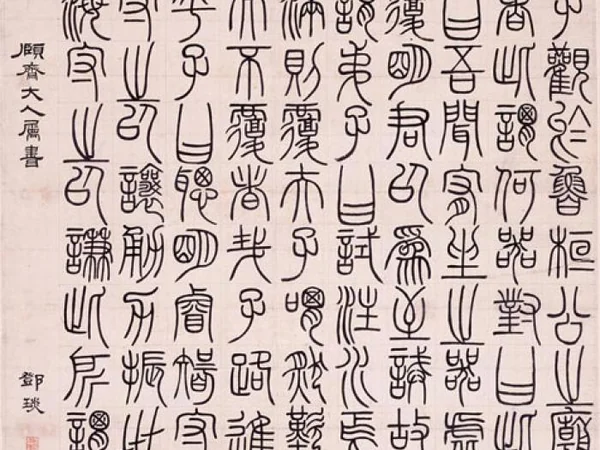 子觀於魯桓公之廟
者此謂何器對曰此
曰吾聞宥坐之器虛
覆明君以爲至誡故
謂弟子曰試注水焉
滿則覆夫子喟然歎
而不覆者哉子路進
乎子曰聰明睿智守
守之以讓勇力振世
海守之以謙此所謂
頤齋大人屬書
鄧琰